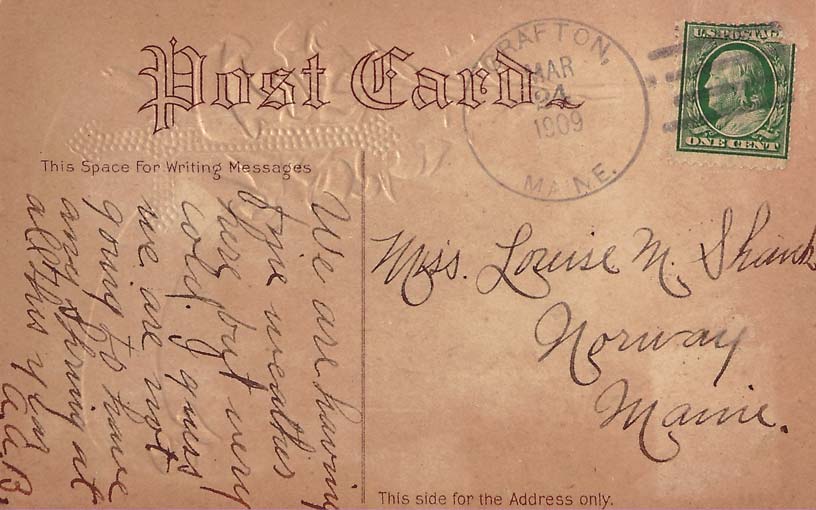 Post Card.
GRAFTON,
MAR
24
1909
MAINE.
U.S. POSTAGE
ONE CENT
This Space For Writing Messages
We are having
fine weather
here but very
cold. I guess
we are not
going to have
any Spring at
all this year
A.A.B.
Miss. Louise M.
Norway
Maine.
This side for the Address only.